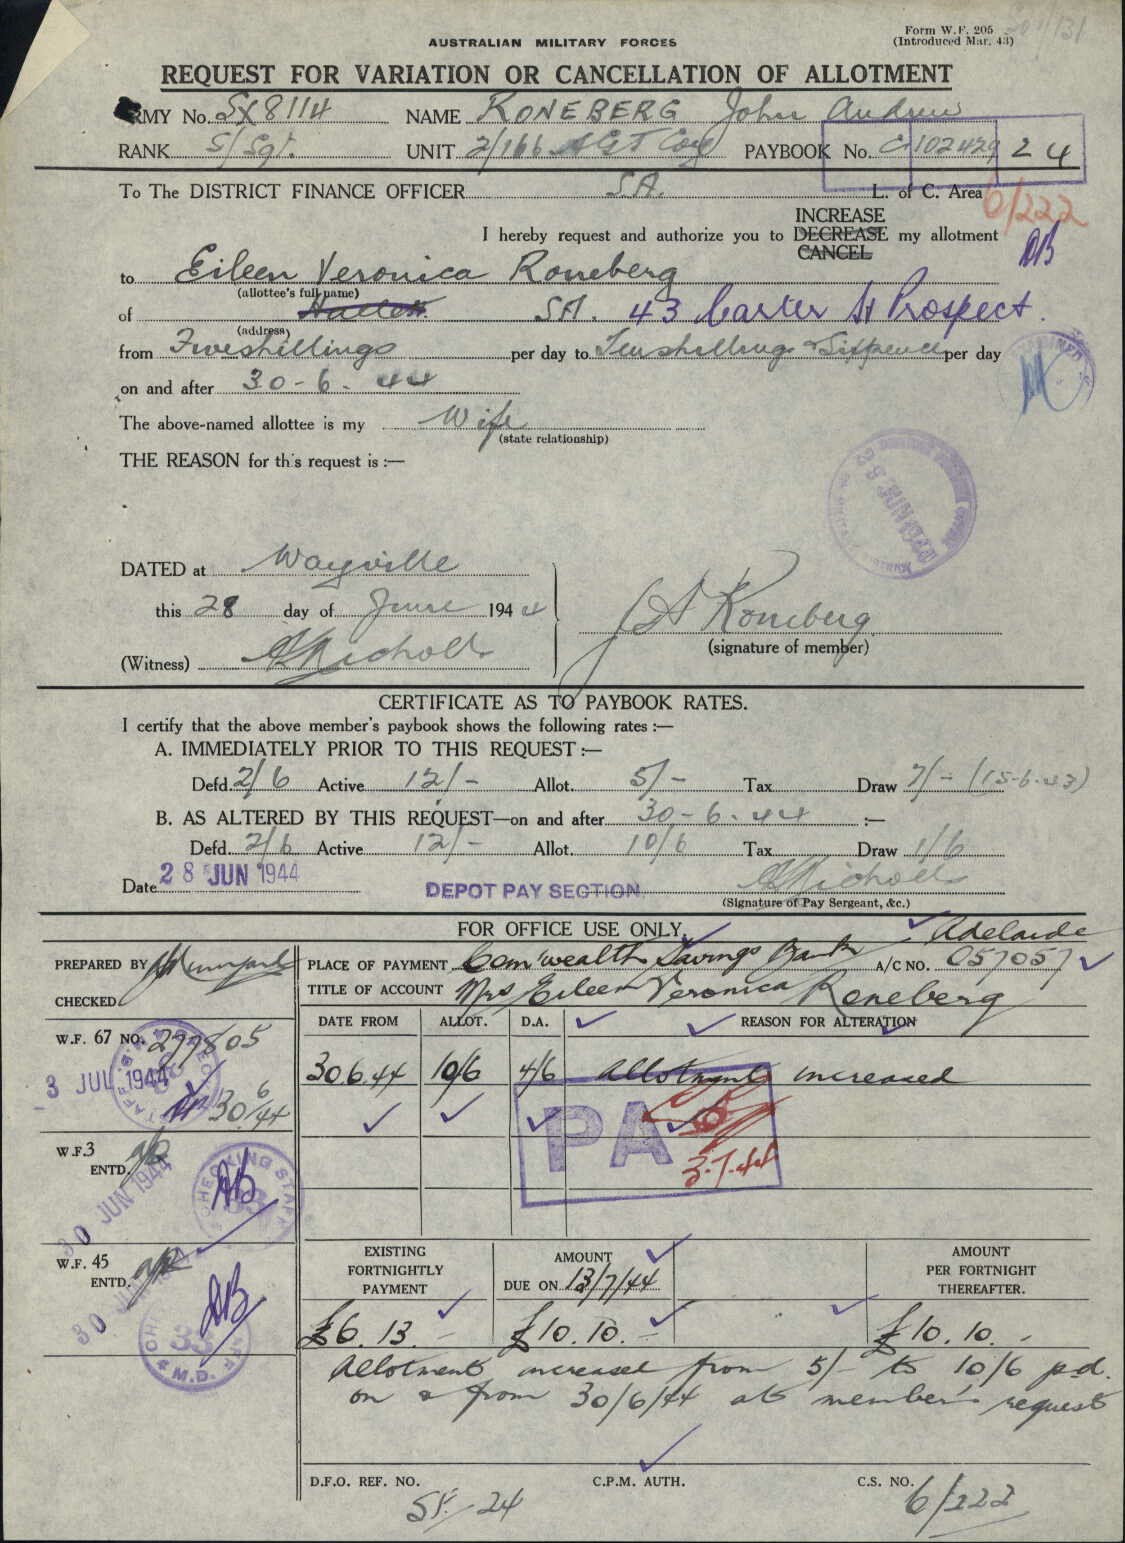 Form W.F. 205
(Introduced Mar. 43)
AUSTRALIAN MILITARY FORCES
REQUEST FOR VARIATION OR CANCELLATION OF ALLOTMENT
ARMY No. SX8114 NAME RONEBERG John Andrew
RANK S/Sgt. UNIT 2/166 AGT Coy PAYBOOK No. 102429 24
To The DISTRICT FINANCE OFFICER S.A. L. of C. Area
6/222
INCREASE
I hereby request and authorize you to DECREASE my allotment
CANCEL
to Eileen Veronica Roneberg
(allottee's full name)
of Hallett S.A. 43 Carter St Prospect.
(address)
from Five shillings per day to Ten shillings & Sixpence per day
on and after 30-6-44
The above-named allottee is my Wife
(state relationship)
THE REASON for this request is :—
DATED at Wayville
this 28 day of June 1944
J A Roneberg
(signature of member)
(Witness) Nicholls
CERTIFICATE AS TO PAYBOOK RATES.
I certify that the above member's paybook shows the following rates :—
A. IMMEDIATELY PRIOR TO THIS REQUEST :—
Defd. 2/6 Active 12/- Allot. 5/- Tax Draw 7/- (15-6-43)
B. AS ALTERED BY THIS REQUEST—on and after 30-6-44 :—
Defd. 2/6 Active 12/- Allot. 10/6 Tax Draw 1/6
Date 28 JUN 1944 DEPOT PAY SECTION Nicholls
(Signature of Pay Sergeant, &c.)
FOR OFFICE USE ONLY. Adelaide
PREPARED BY
PLACE OF PAYMENT Com'wealth Savings Bank A/C NO. 057057
CHECKED
TITLE OF ACCOUNT Mrs Eileen Veronica Roneberg
DATE FROM ALLOT. D.A. REASON FOR ALTERATION
W.F. 67 NO. 277805
3 JUL 1944
30/6/44
30.6.44 10/6 4/6 Allotment increased
PA
3.7.44
W.F.3
ENTD.
30 JUN 1944
CHECKING STAFF
33
W.F. 45
ENTD.
30 JUN
33
M.D.
EXISTING FORTNIGHTLY PAYMENT
AMOUNT DUE ON 13/7/44
AMOUNT PER FORTNIGHT THEREAFTER.
£6.13.- £10.10.- £10.10.-
Allotment increased from 5/- to 10/6 p.d.
on & from 30/6/44 at member's request
D.F.O. REF. NO. C.P.M. AUTH. C.S. NO.
24 6/222